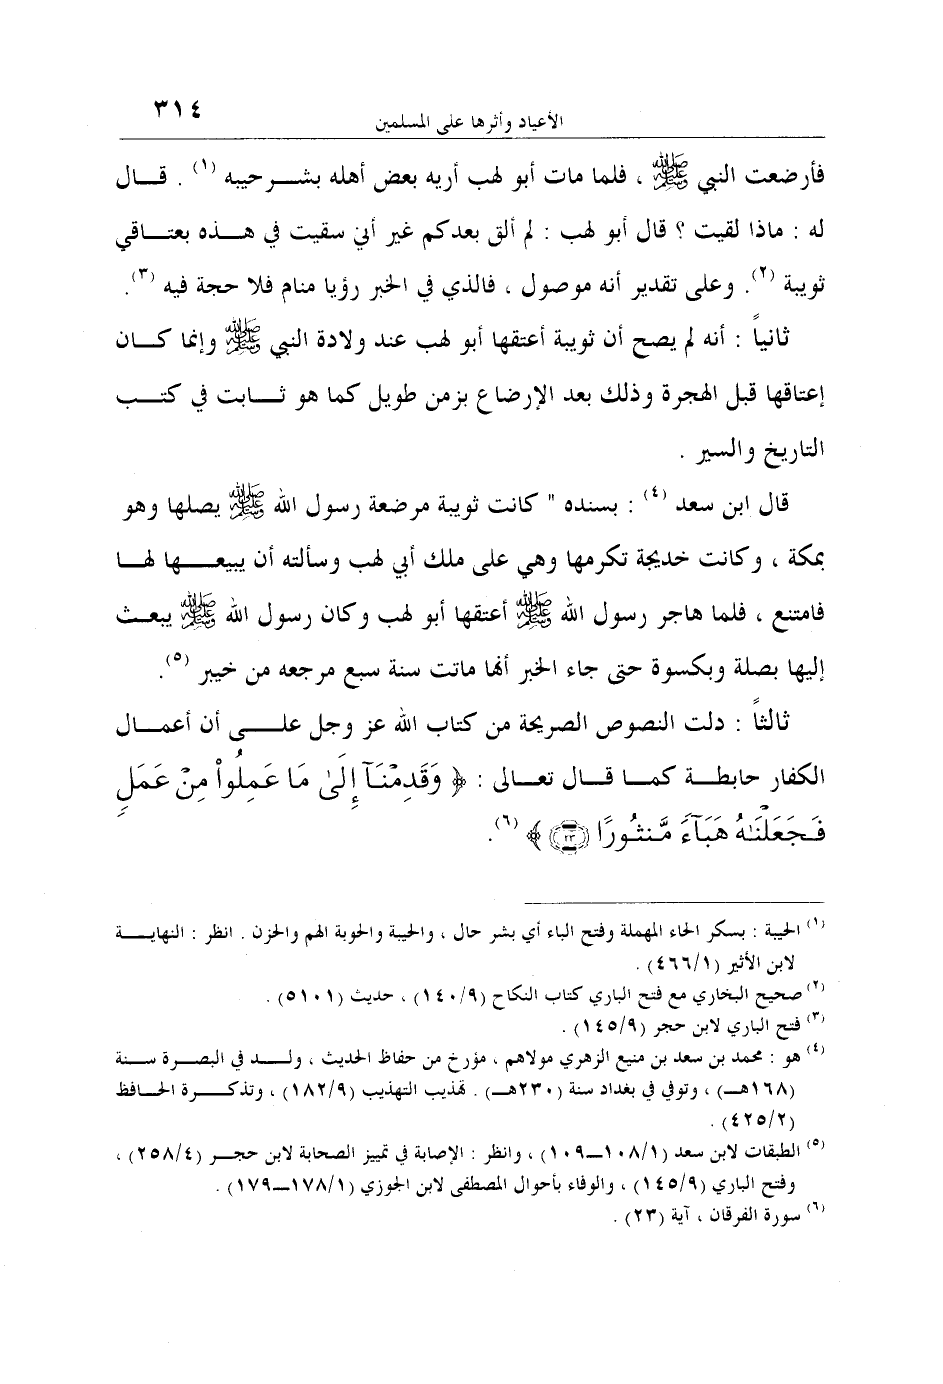 الأعياد وأثرها على المسلمين
٣١٤
فأرضعت النبي ﷺ ، فلما مات أبو لهب أريه بعض أهله بشر حيبه (١) . قال
له : ماذا لقيت ؟ قال أبو لهب : لم ألق بعدكم غير أني سقيت في هذه بعتاقي
ثويبة (٢). وعلى تقدير أنه موصول ، فالذي في الخبر رؤيا منام فلا حجة فيه (٣).
ثانياً : أنه لم يصح أن ثويبة أعتقها أبو لهب عند ولادة النبي ﷺ وإنما كان
إعتاقها قبل الهجرة وذلك بعد الإرضاع بزمن طويل كما هو ثابت في كتب
التاريخ والسير .
قال ابن سعد (٤) : بسنده " كانت ثويبة مرضعة رسول الله ﷺ يصلها وهو
بمكة ، وكانت خديجة تكرمها وهي على ملك أبي لهب وسألته أن يبيعها لها
فامتنع ، فلما هاجر رسول الله ﷺ أعتقها أبو لهب وكان رسول الله ﷺ يبعث
إليها بصلة وبكسوة حتى جاء الخبر أنها ماتت سنة سبع مرجعه من خيبر (٥).
ثالثاً : دلت النصوص الصريحة من كتاب الله عز وجل على أن أعمال
الكفار حابطة كما قال تعالى : ﴿ وَقَدِمْنَآ إِلَىٰ مَا عَمِلُواْ مِنْ عَمَلٍ
فَجَعَلْنَٰهُ هَبَآءً مَّنثُورًا ٢٣ ﴾ (٦).
(١) الحيبة : بسكر الحاء المهملة وفتح الباء أي بشر حال ، والحيبة والحوبة الهم والحزن . انظر : النهاية
لابن الأثير (٤٦٦/١) .
(٢) صحيح البخاري مع فتح الباري كتاب النكاح (١٤٠/٩) ، حديث (٥١٠١) .
(٣) فتح الباري لابن حجر (١٤٥/٩) .
(٤) هو : محمد بن سعد بن منيع الزهري مولاهم ، مؤرخ من حفاظ الحديث ، ولد في البصرة سنة
(١٦٨هـ) ، وتوفي في بغداد سنة (٢٣٠هـ) . تهذيب التهذيب (١٨٢/٩) ، وتذكرة الحافظ
(٤٢٥/٢) .
(٥) الطبقات لابن سعد (١٠٨/١ـ١٠٩) ، وانظر : الإصابة في تمييز الصحابة لابن حجر (٢٥٨/٤) ،
وفتح الباري (١٤٥/٩) ، والوفاء بأحوال المصطفى لابن الجوزي (١٧٨/١ـ١٧٩) .
(٦) سورة الفرقان ، آية (٢٣) .